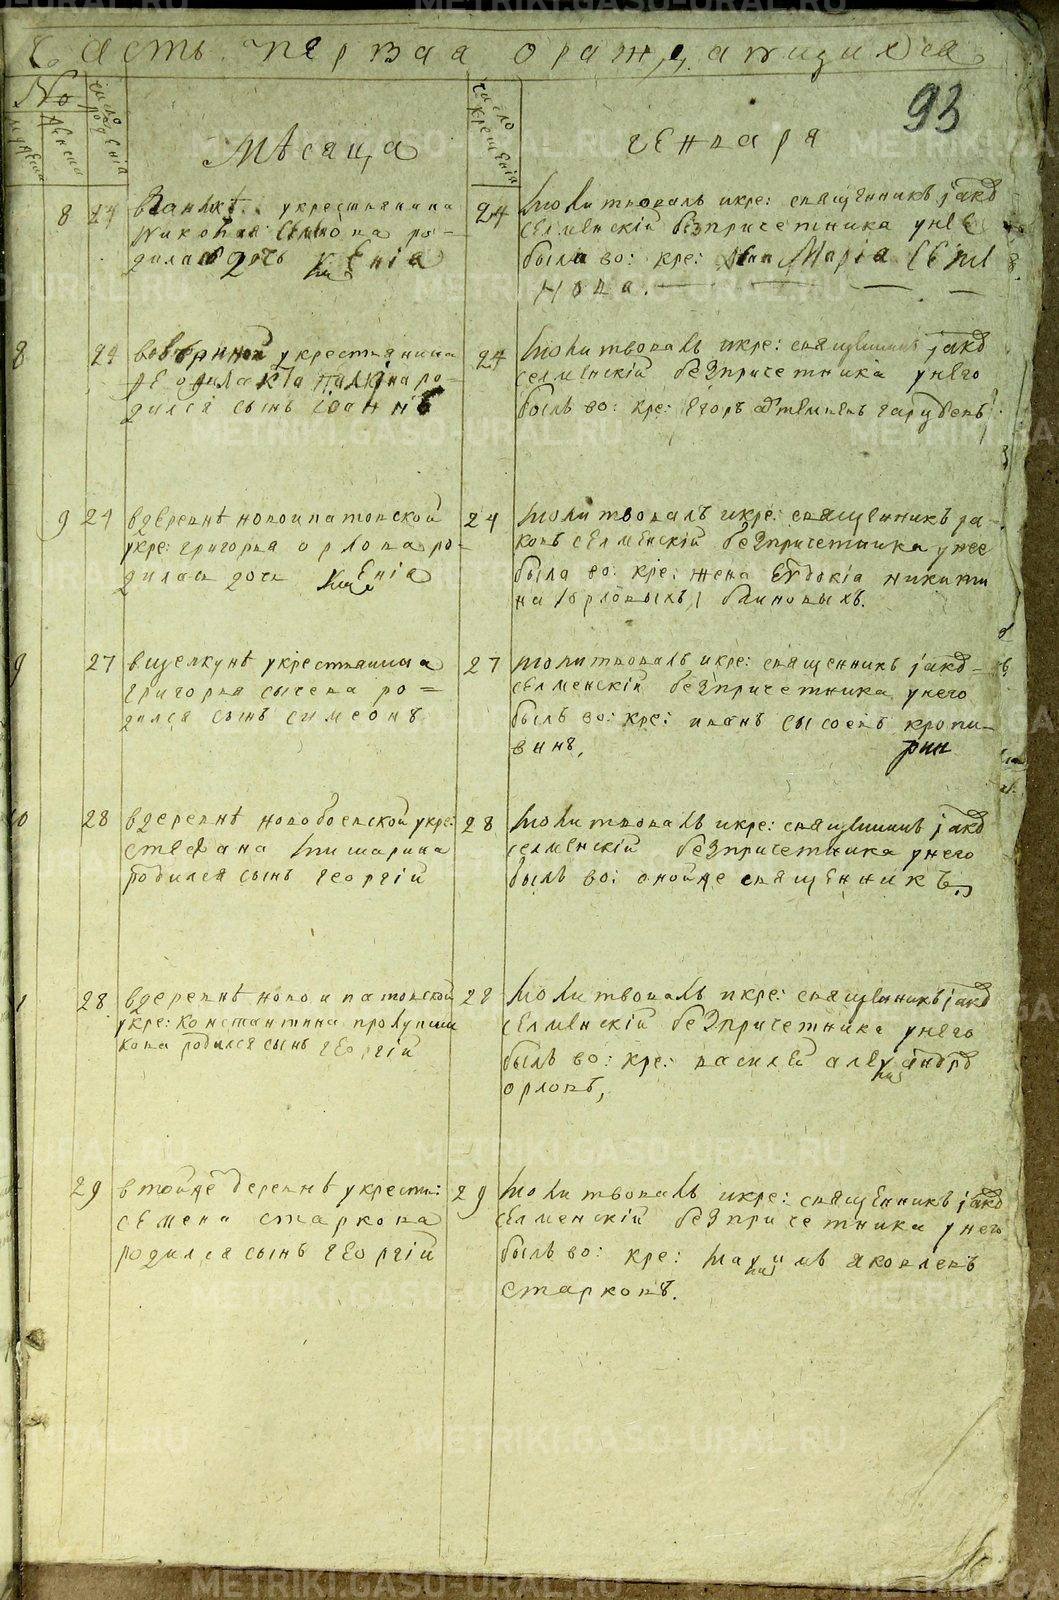 Часть первая ораждающихся
93
№
число рождения
число крещенія
Мѣсяца
генваря
8 24 укрестьянина
ро=
дилась дочь Ксенія
24 молитвовалъ икре: священникъ јаковъ
селменскій безпричетника унее
была во: кре: Марія Семе
нова.
8 24 укрестьянина
ро=
дился сынъ іоаннъ
24 молитвовалъ икре: священникъ јаковъ
селменскій безпричетника унего
былъ во: кре: Егоръ
9 24 вдеревнѣ новоипатовской
укре: григорья орлова ро=
дилась дочь Ксенія
24 молитвовалъ икре: священникъ ја=
ковъ селменскій безпричетника унее
была во: кре: жена Евдокіа никити
на орловыхъ блиновыхъ.
9 27 вщелкунѣ укрестьянина
григорья сычева ро=
дился сынъ симеонъ
27 молитвовалъ икре: священникъ јаковъ
селменскій безпричетника унего
былъ во: кре: иванъ сысоевъ кропи=
винъ,
0 28 вдеревнѣ новобоевской укре:
стефана мишарина
родился сынъ георгій
28 молитвовалъ икре: священникъ јаковъ
селменскій безпричетника унего
былъ во: онойже священникъ.
1 28 вдеревнѣ новоипатовской
укре: константина
кова родился сынъ георгій
28 молитвовалъ икре: священникъ јаковъ
селменскій безпричетника унего
былъ во: кре: василей
орловъ,
29 втойже деревнѣ укрестья:
семена старкова
родился сынъ георгій
29 молитвовалъ икре: священникъ јаковъ
селменскій безпричетника унего
былъ во: кре: яковлевъ
старковъ.
METRIKI.GASO-URAL.RU